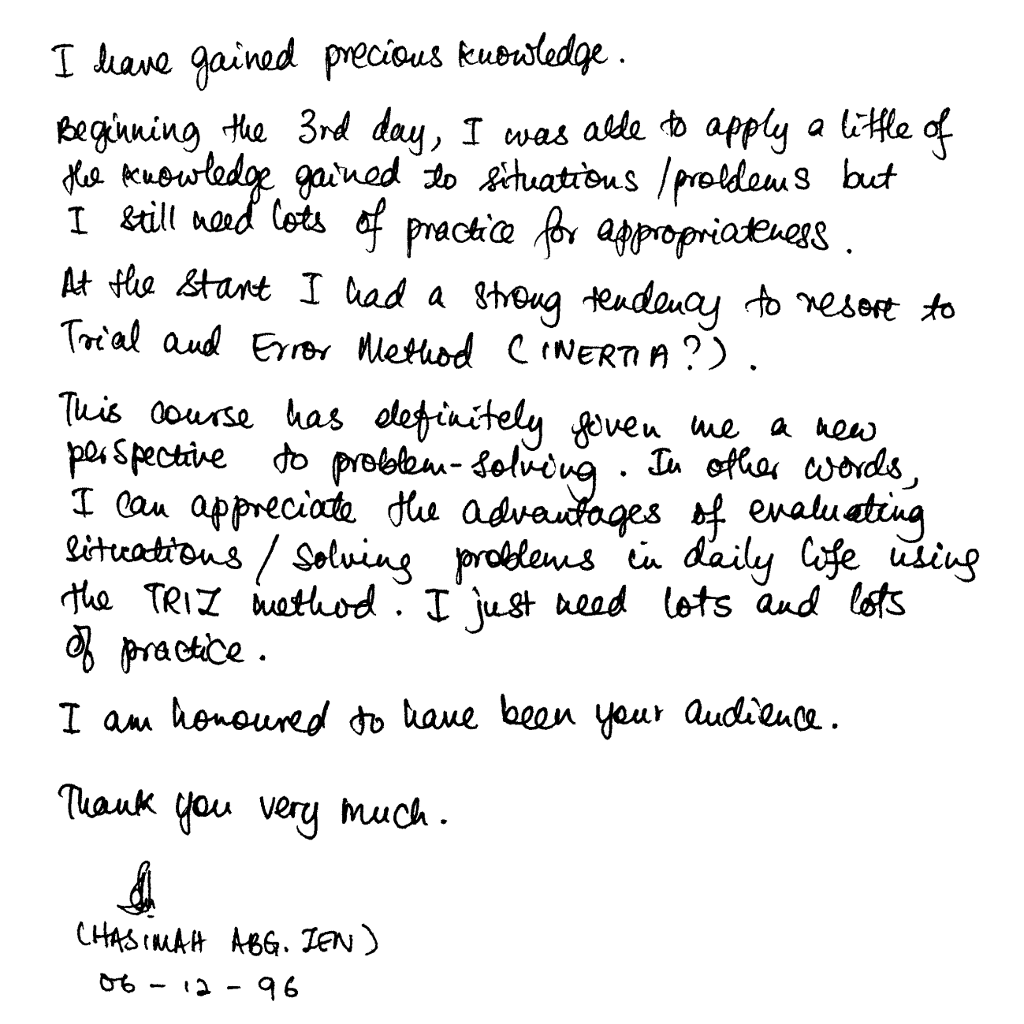 I have gained precious knowledge.
Beginning the 3rd day, I was able to apply a little of
the knowledge gained to situations / problems but
I still need lots of practice for appropriateness.
At the start I had a strong tendency to resort to
Trial and Error Method (INERTIA?).
This course has definitely given me a new
perspective to problem-solving. In other words,
I can appreciate the advantages of evaluating
situations / solving problems in daily life using
the TRIZ method. I just need lots and lots
of practice.
I am honoured to have been your audience.
Thank you very much.
(HASIMAH ABG. ZEN)
06 - 12 - 96